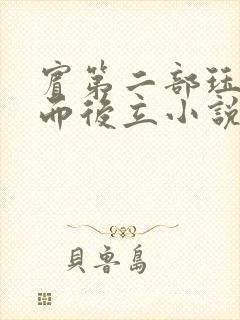 賓第二部珏
而後立小說
貝魯島